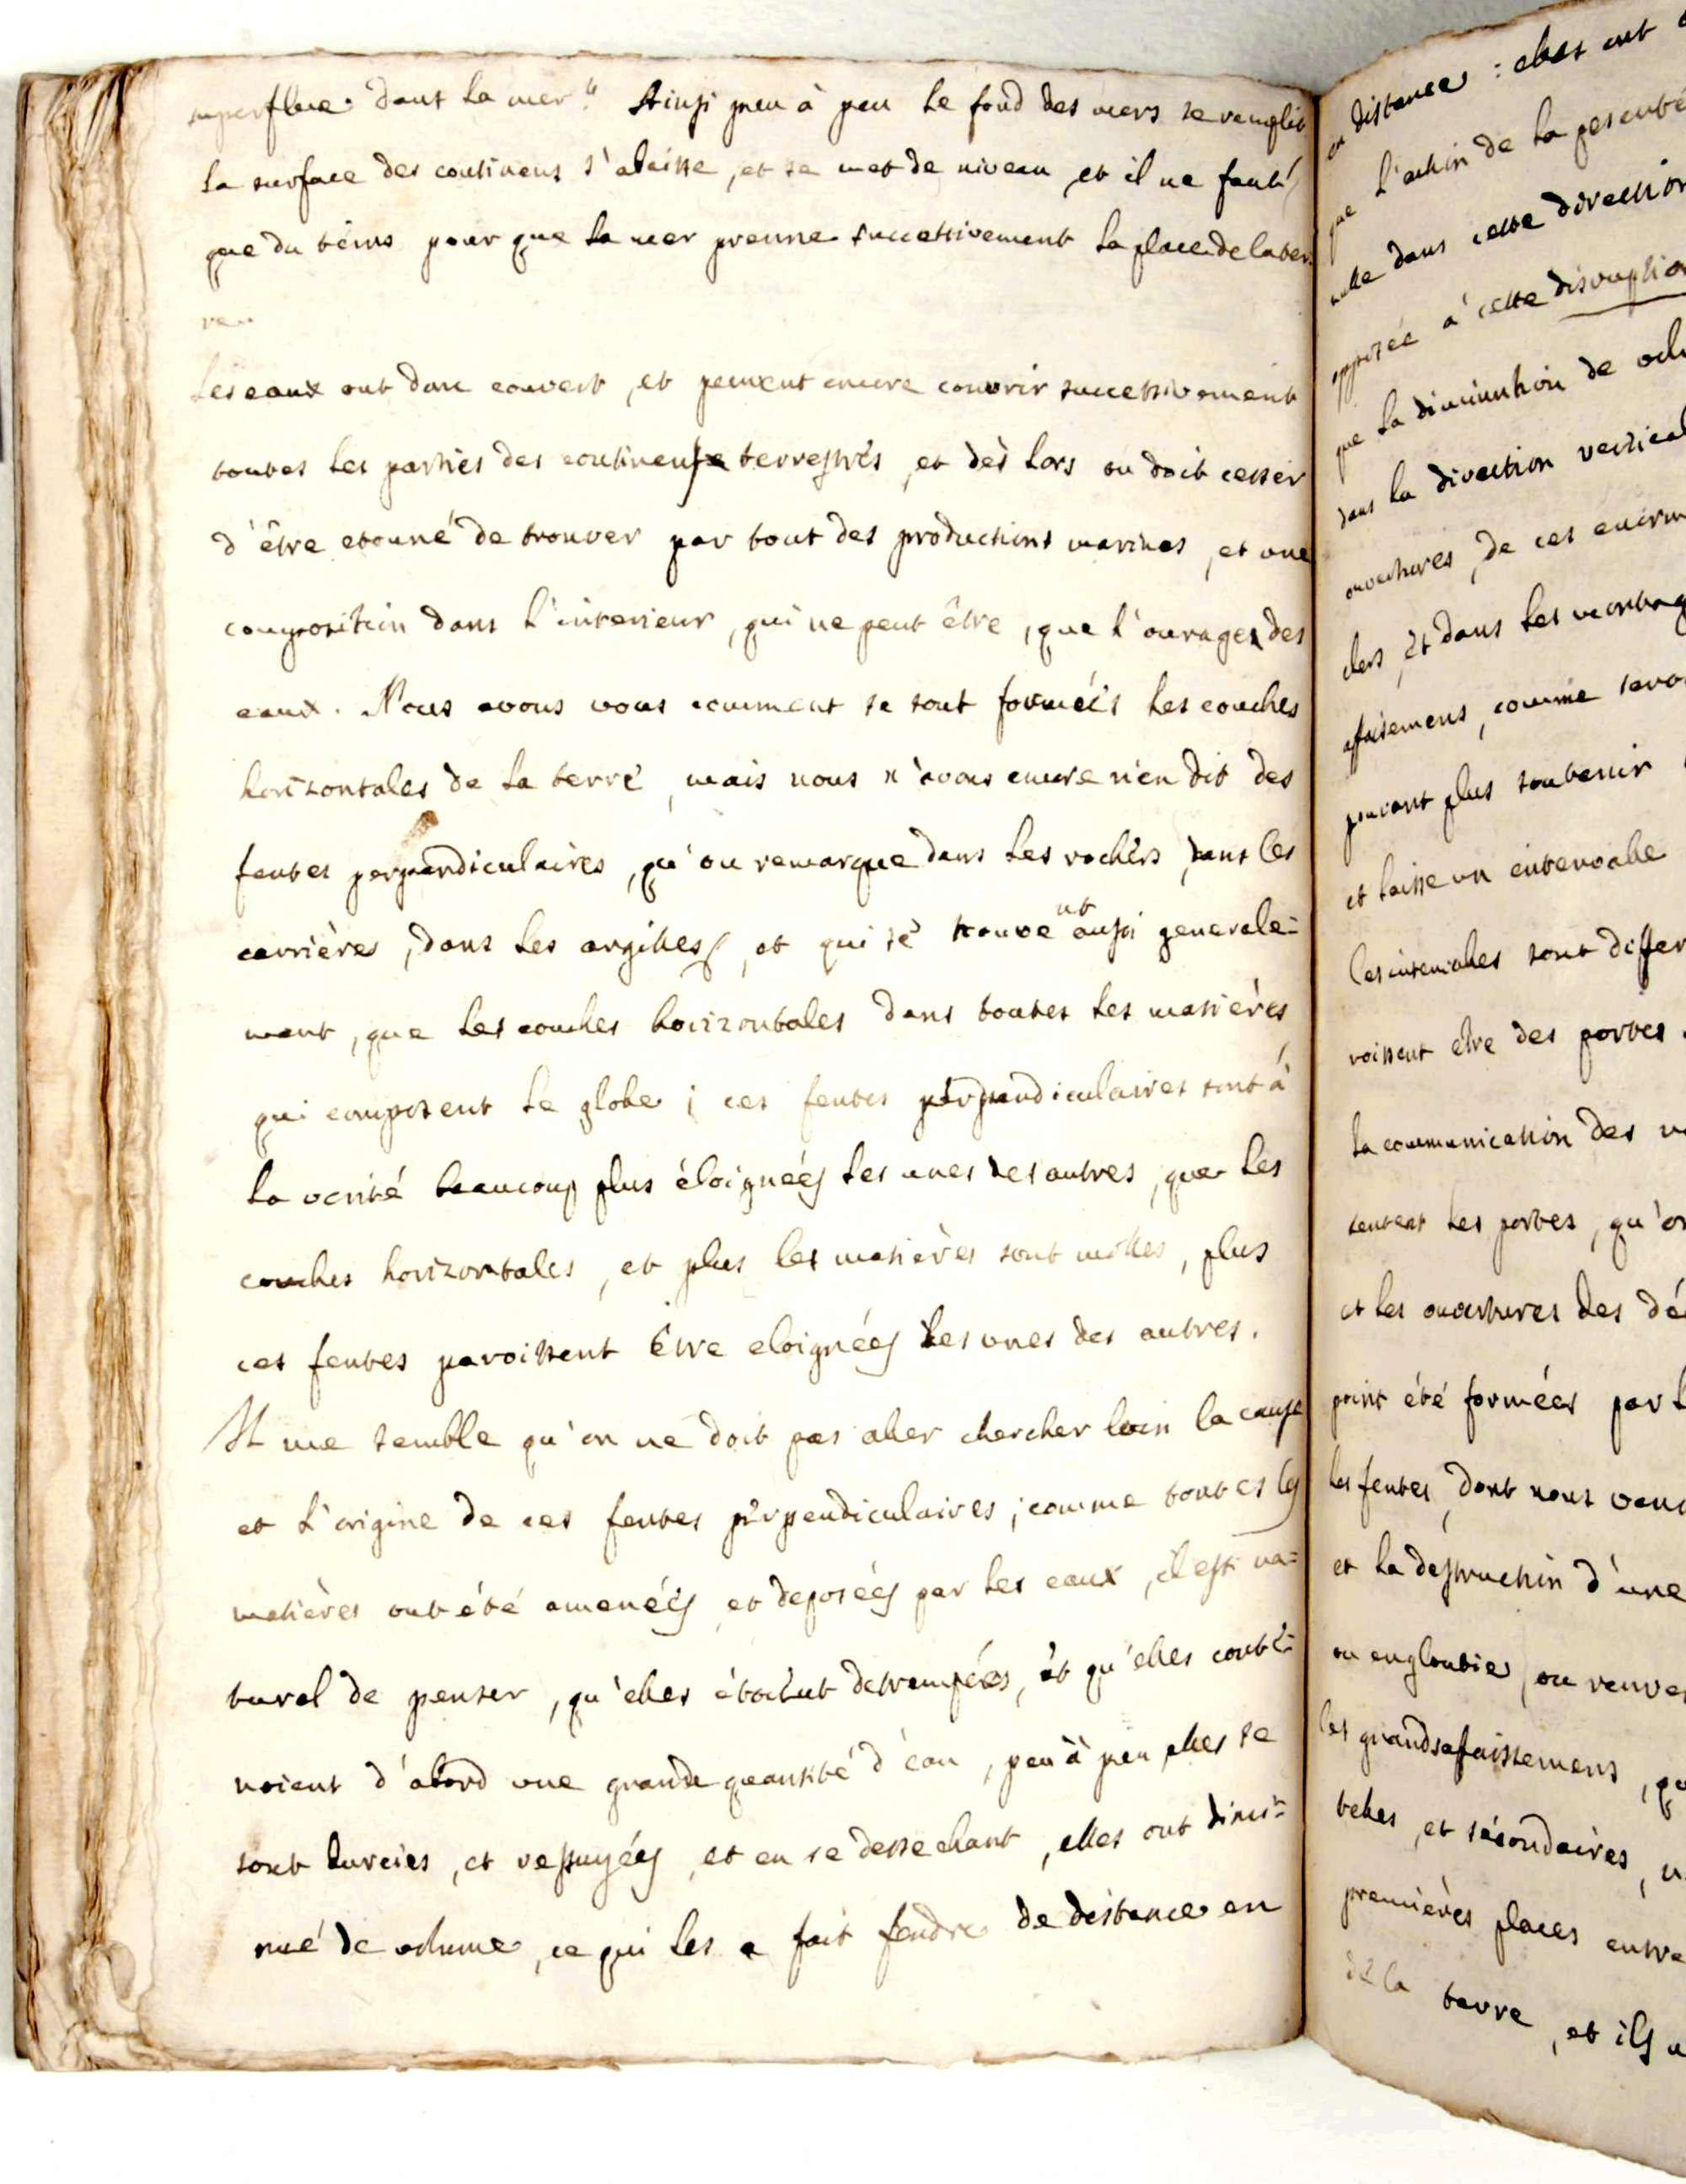 superflue dans la mer." Ainsi peu à peu le fond des mers se remplit
la surface des continens s'abaisse, et se met de niveau et il ne faut
que du téms pour que la mer prenne successivement la place de la ter
re.
Les eaux ont donc couvert, et peuvent encore couvrir successivement
toutes les parties des continens terrestrés, et dès lors on doit cesser
d'être etonné de trouver par tout des productions marines, et une
composition dans l'interieur, qui ne peut être, que l'ouvrage des
eaux. Nous avons vous comment se sont formées les couches
horizontales de la terre, mais nous n'avons encore rien dit des
fentes perpendiculaires, qu'on remarque dans les rochers, dans les
carrières, dans les argilles, et qui se trouvent aussi generale=
ment, que les couches horizontales dans toutes les matières
qui composent le globe; ces fentes perpendiculaires sont à
la verité beaucoup plus éloignées les unes des autres, que les
couches horizontales, et plus les matières sont molles, plus
ces fentes paroissent être eloignées les unes des autres.
Il me semble qu'on ne doit pas aller chercher loin la cause
et l'origine de ces fentes perpendiculaires; comme toutes les
matières ont été amenées, et deposées par les eaux, il est na=
turel de penser, qu'elles étoient detrempées, et qu'elles conte=
noient d'abord une grande quantité d'eau, peu à peu elles se
sont durcies, et ressuyées, et en se dessechant, elles ont dimi=
nué de volume, ce qui les a fait fendre de distance en
en distance: elles ont
que l'action de la pesanté
nulle dans cette direction
opposée à cette disruption
que la diminution de vol
dans la direction vertical
ouvertures, de ces enorm
chers, et dans les montag
affaisemens, comme
pouvant plus soutenir
et laisse un intervalle
les intervalles sont differ
roissent être des portes
la communication des
sentent les portes, qu'on
et les ouvertures des dé
point été formées par l
les fentes, dont nous ven
et la destruction d'une
ou engloutie, ou renver
les grands affaissemens, qu
telles, et sécondaires,
premières places entre
de la terre, et ils